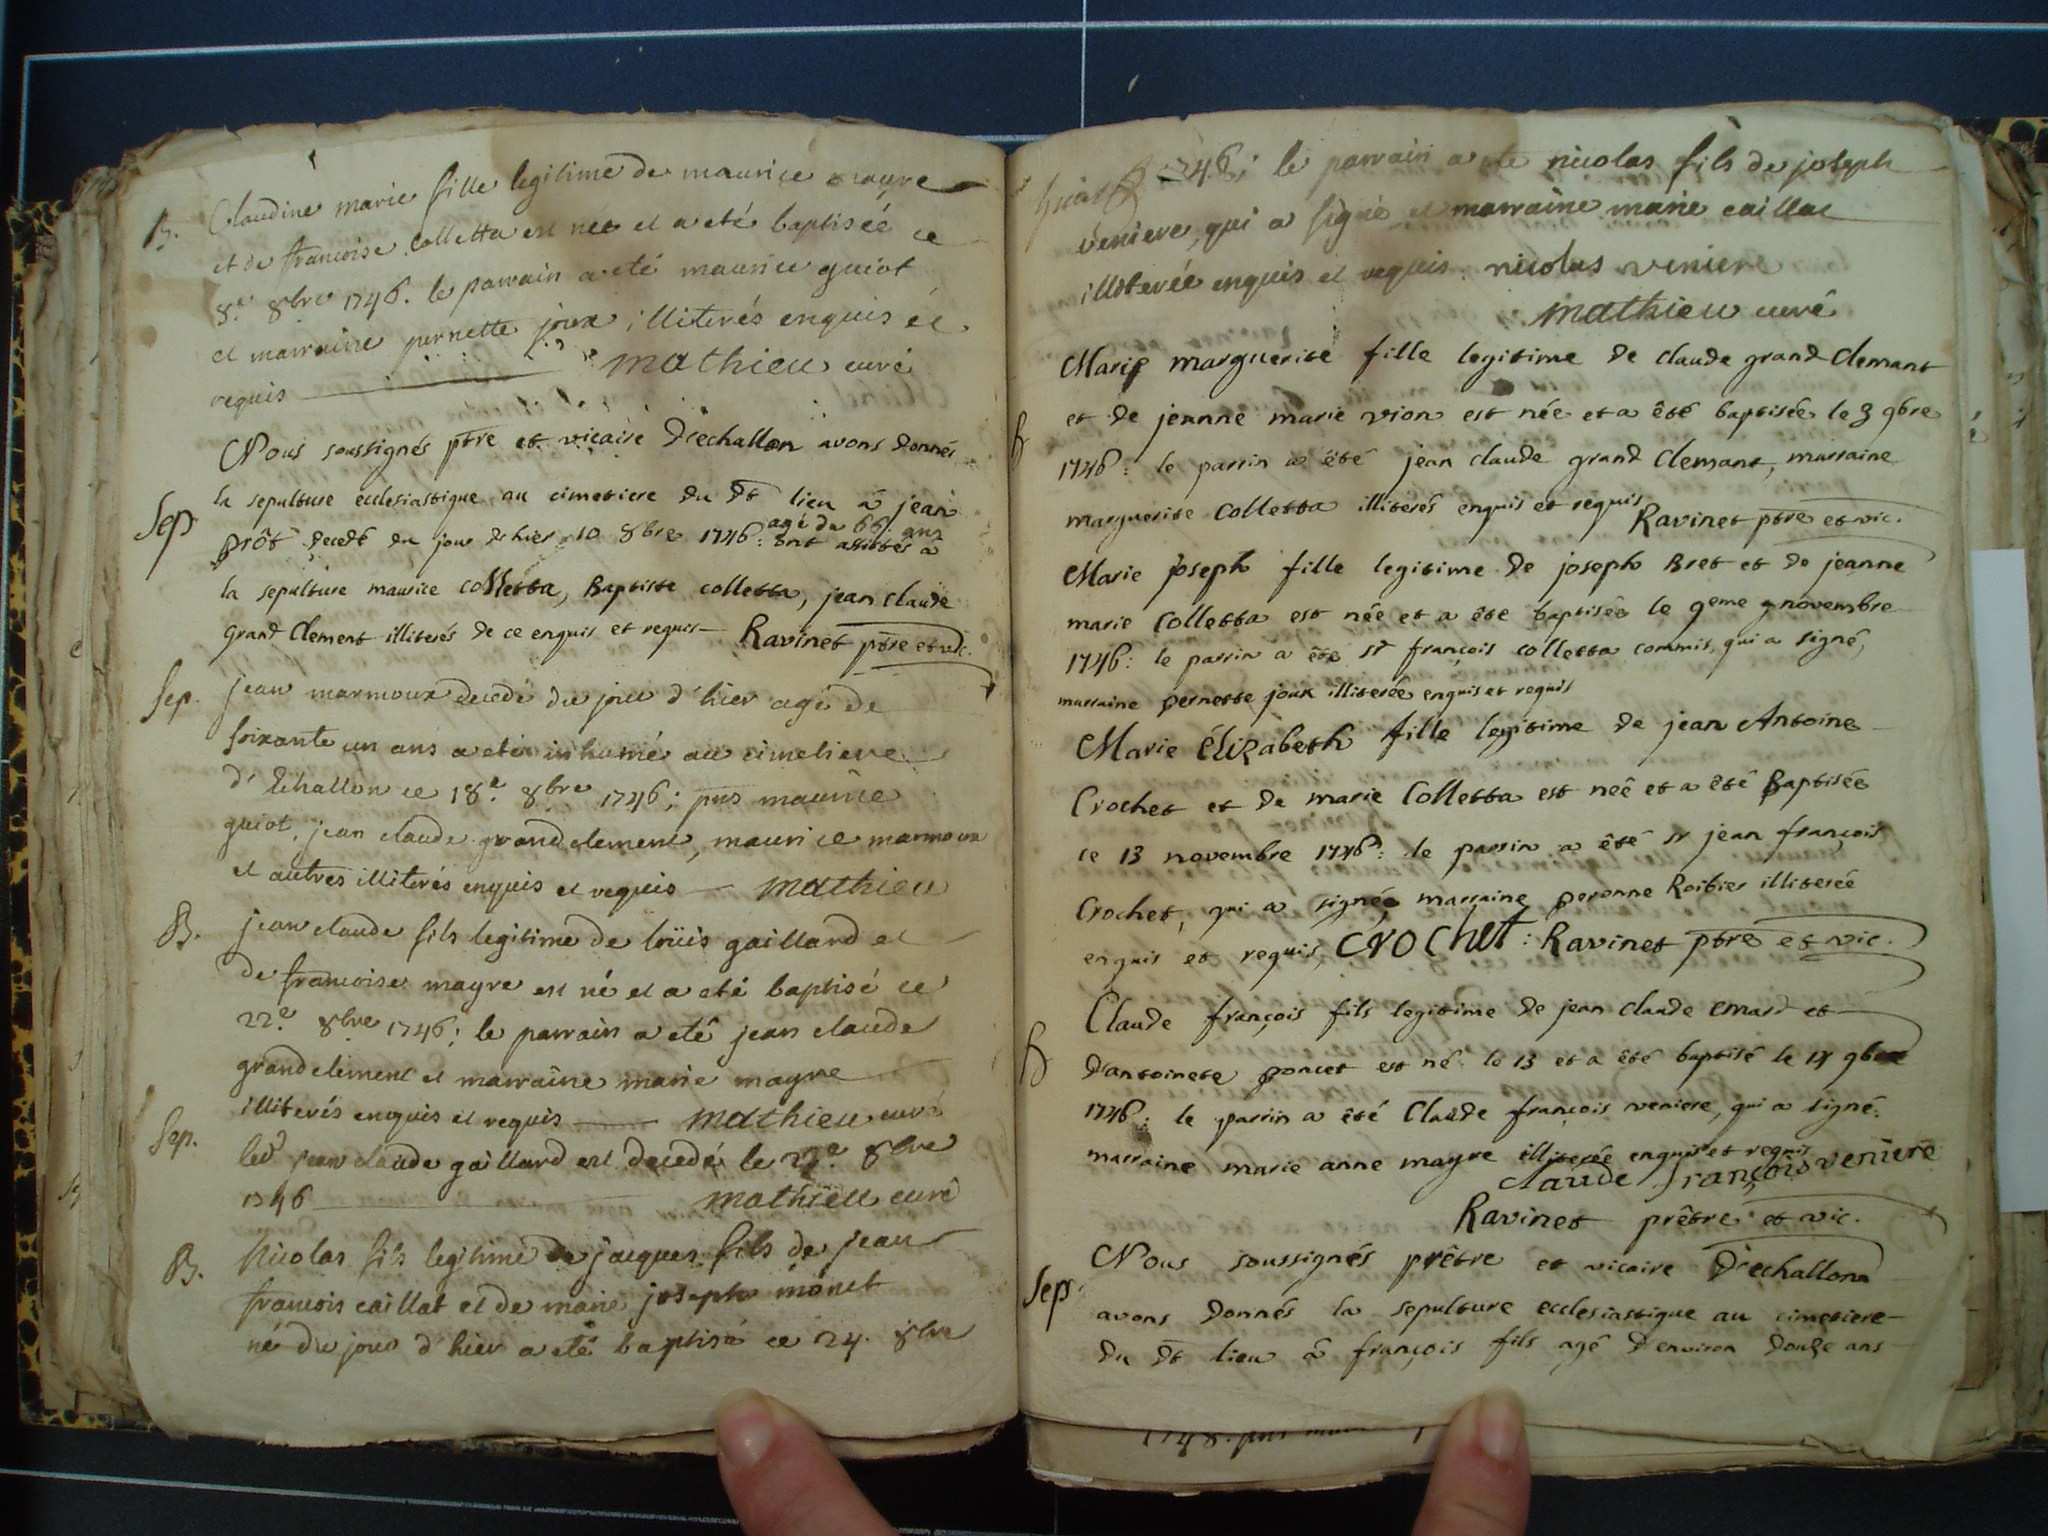 B. Claudine marie fille legitime de maurice mayre
et de francoise Colletta est née et a eté baptisée ce
8.e 8bre 1746. le parrain a eté maurice guiot
et marraine pernette joux illiterés enquis et
requis mathieu curé
Nous soussignés ptre et vicaire D'echallon avons donnés
la sepulture ecclesiastique au cimetiere du dt lieu a jean
Sep
agé de 66 ans
prôt decedé du jour d'hier 10 8bre 1746: ont assistés a
la sepulture maurice Colletta, Baptiste colletta, jean claude
grand Clement illiterés de ce enquis et requis Ravinet ptre et vic.
Sep. jean marmoux decedé du jour d'hier agé de
soixante un ans a eté inhumé au cimetiere
d'Echallon ce 18.e 8bre 1746; pns maurice
guiot, jean claude grandclement, maurice marmoux
et autres illiterés enquis et requis mathieu
B. jean claude fils legitime de loüis gaillard et
de francoise mayre est né et a eté baptisé ce
22.e 8bre 1746; le parrain a eté jean claude
grandclement et marraine marie mayre
illiterés enquis et requis mathieu curé
Sep. led jean claude gaillard est decedé le 23.e 8bre
1746 mathieu curé
B. Nicolas fils legitime de jacques fils de jean
francois caillat et de marie josephe monet
né du jour d'hier a eté baptisé ce 24. 8bre
1746; le parrain a eté nicolas fils de joseph
veniere, qui a signé et marraine marie caillat
illiterée enquis et requis. nicolas veniere
mathieu curé
Marie marguerite fille legitime de claude grand Clemant
et de jeanne marie vion est née et a êté baptisée le 3 9bre
B
1746: le parrin a êté jean claude grand Clemant, marraine
marguerite Colletta illiterés enquis et requis Ravinet ptre et vic.
Marie Joseph fille legitime de joseph Bret et de jeanne
marie Colletta est née et a été baptisée le 9eme novembre
1746: le parrin a été sr françois colletta commis, qui a signé,
marraine pernette joux illiterée enquis et requis
Marie Élizabeth fille legitime de jean Antoine
Crochet et de marie Colletta est neé et a êté Baptisée
ce 13 novembre 1746: le parrin a êté sr jean françois
Crochet, qui a signée, marraine peronne Roibier illiterée
enquis et requis, Crochet: Ravinet ptre et vic.
Claude françois fils legitime de jean claude emard et
B d'antoinete poncet est né le 13 et a êté baptisé le 14 9bre
1746: le parrin a êté Claude françois veniere, qui a signé:
marraine marie anne mayre illiterée enquis et requis
claude françois veniere
Ravinet prêtre et vic.
Nous soussignés prêtre et vicaire D'echallon
Seps.
avons donnés la sepulture ecclesiastique au cimetiere
du dt lieu â françois fils agé d'environ douze ans